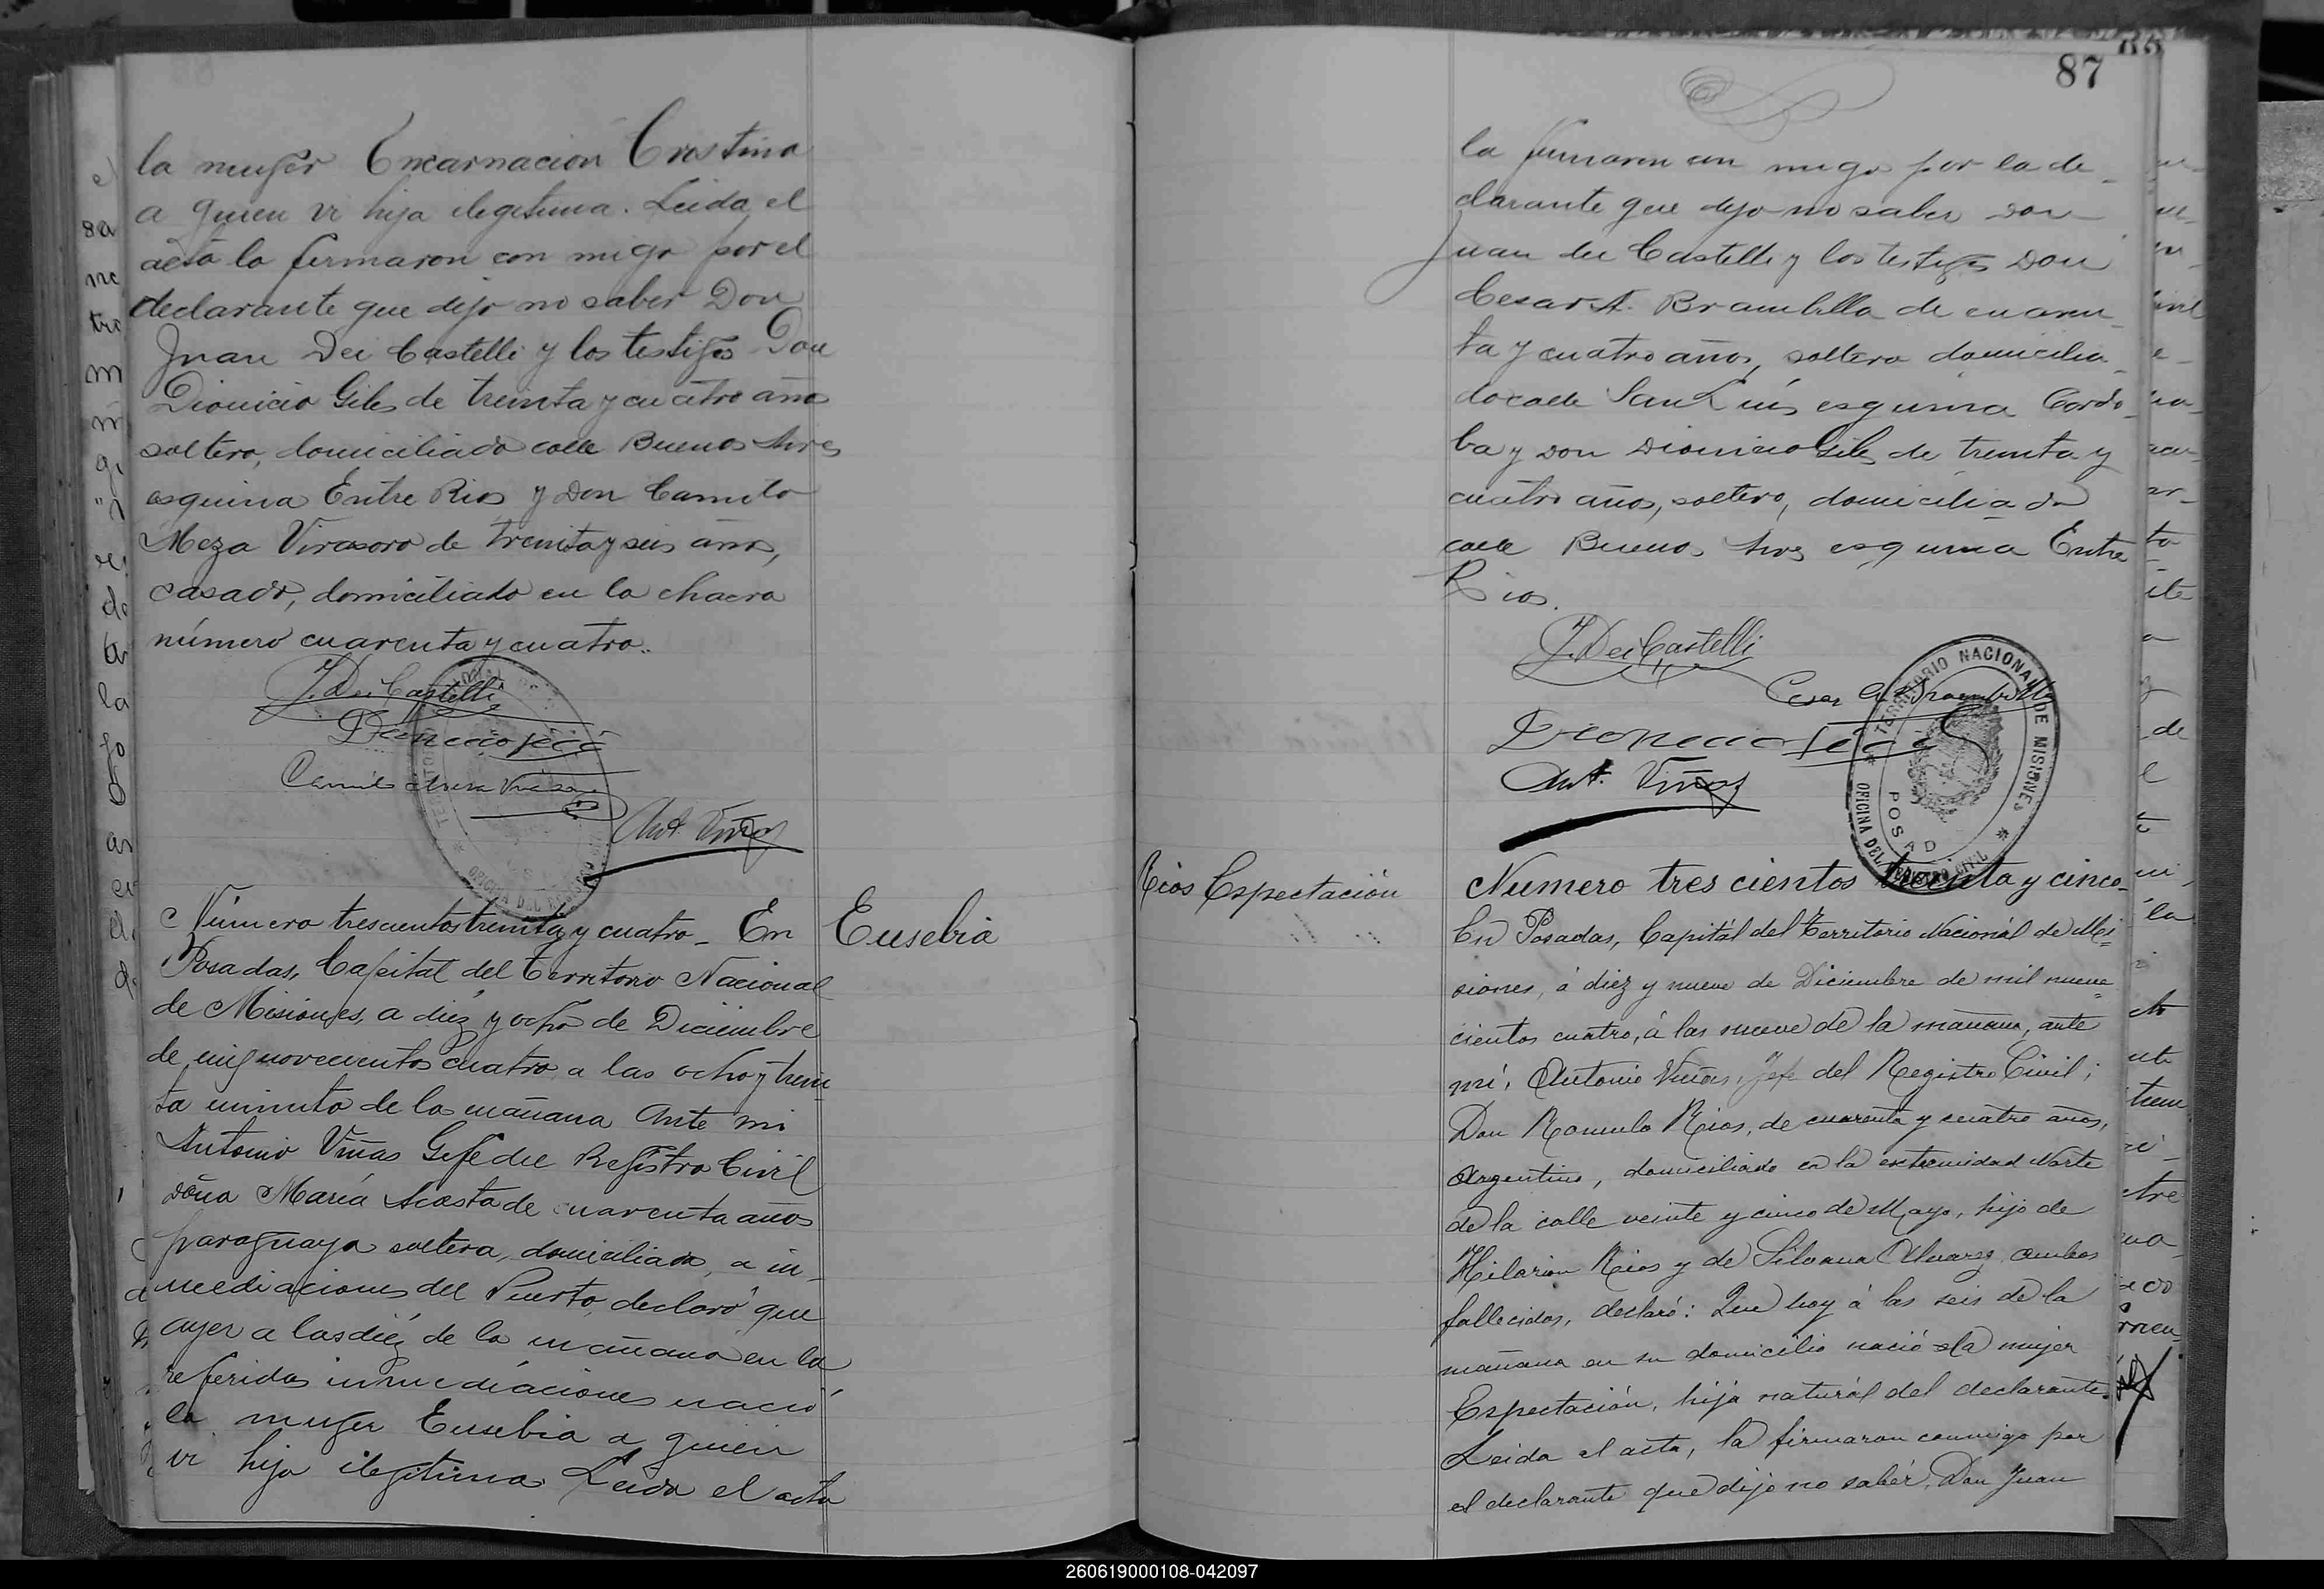 la muger Encarnacion Cristina
a quien vi hija ilegitima. Leida el
acta la firmaron con migo por el
declarante que dijo no saber Don
Juan Dei Castelli y los testigos Don
Dionicio Giles de treinta y cuatro años
soltero, domiciliado calle Buenos Aires
esquina Entre Rios y Don Camilo
Meza Virasoro de treinta y seis años,
casado, domiciliado en la chacra
número cuarenta y cuatro.
J. Dei Castelli
Dionicio
Camilo Virasoro
Ant. Viñas
Número trescientos treinta y cuatro_ En
Eusebia
Posadas, Capital del Territorio Nacional
de Misiones, a diez y ocho de Diciembre
de mil novecientos cuatro a las ocho y trein
ta minuto de la mañana Ante mi
Antonio Viñas Gefe del Registro Civil
doña María Acosta de cuarenta años
paraguaya soltera, domiciliada, a in_
mediaciones del Puerto, declaró que
ayer a las diez de la mañana en la
referidas inmediaciones nació
la muger Eusebia a quien
vi hija ilegitima Leida el acta
87
la firmaron con migo por la de_
clarante que dijo no saber Don
Juan dei Castelli y los testigos Don
Cesar A. Brambilla de cuaren_
ta y cuatro años, soltero domicilia_
do calle San Luis esquina Cordo_
ba y Don Dionicio Giles de treinta y
cuatro años, soltero, domiciliado
calle Buenos Aires esquina Entre
Rios.
J. Dei Castelli
Cesar A. Brambilla
Dionicio
Ant. Viñas
TERRITORIO NACIONAL DE MISIONES
OFICINA DEL REGISTRO CIVIL
POSADAS
Rios Espectación
Numero tres cientos treinta y cinco_
En Posadas, Capitál del Territorio Nacionál de Mi=
siones, á diez y nueve de Diciembre de mil nueve=
cientos cuatro, á las nueve de la mañana, ante
mí, Antonio Viñas, Jefe del Registro Civil;
Don Romulo Rios, de cuarenta y cuatro años,
Argentino, domiciliado en la extremidad Norte
de la calle veinte y cinco de Mayo, hijo de
Hilarion Rios y de Silvana Alvarez, ambos
fallecidos, declaró: Que hoy á las seis de la
mañana en su domicilio nació la mujer
Espectación, hija naturál del declarante.
Leida el acta, la firmaron conmigo por
el declarante que dijo no sabér, Don Juan
260619000108-042097